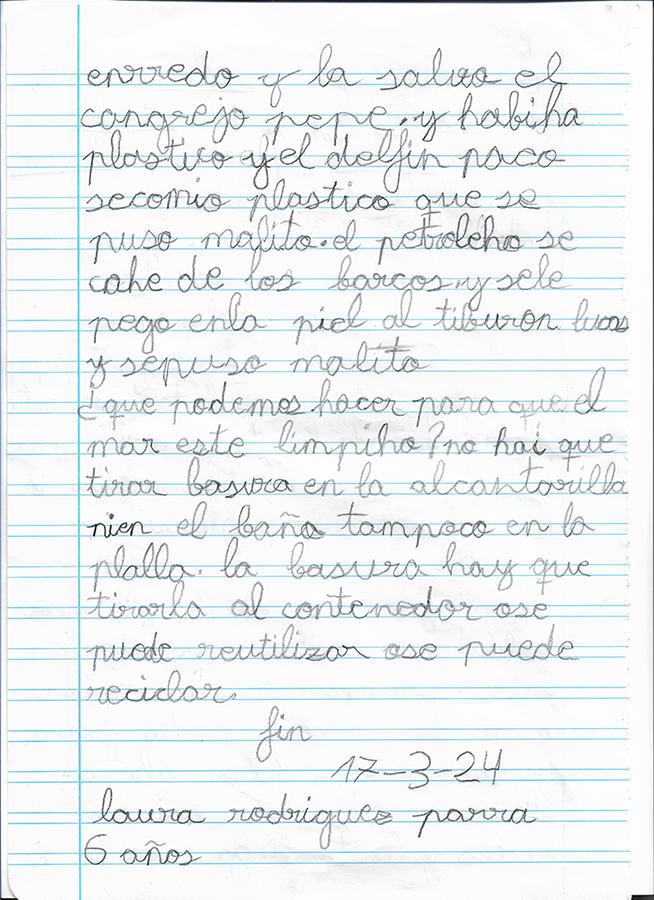 enrredo y la salva el
cangrejo pepe. y habiha
plastico y el delfin paco
secomio plastico que se
puso malito. el petroleho se
cahe de los barcos. y sele
pego enla piel al tiburon lucas
y sepuso malito
¿que podemos hacer para que el
mar este limpiho? no hai que
tirar basura en la alcantarilla
nien el baño tampoco en la
plalla. la basura hay que
tirarla al contenedor ose
puede reutilizar ose puede
reciclar.
fin
17-3-24
laura rodriguez parra
6 años